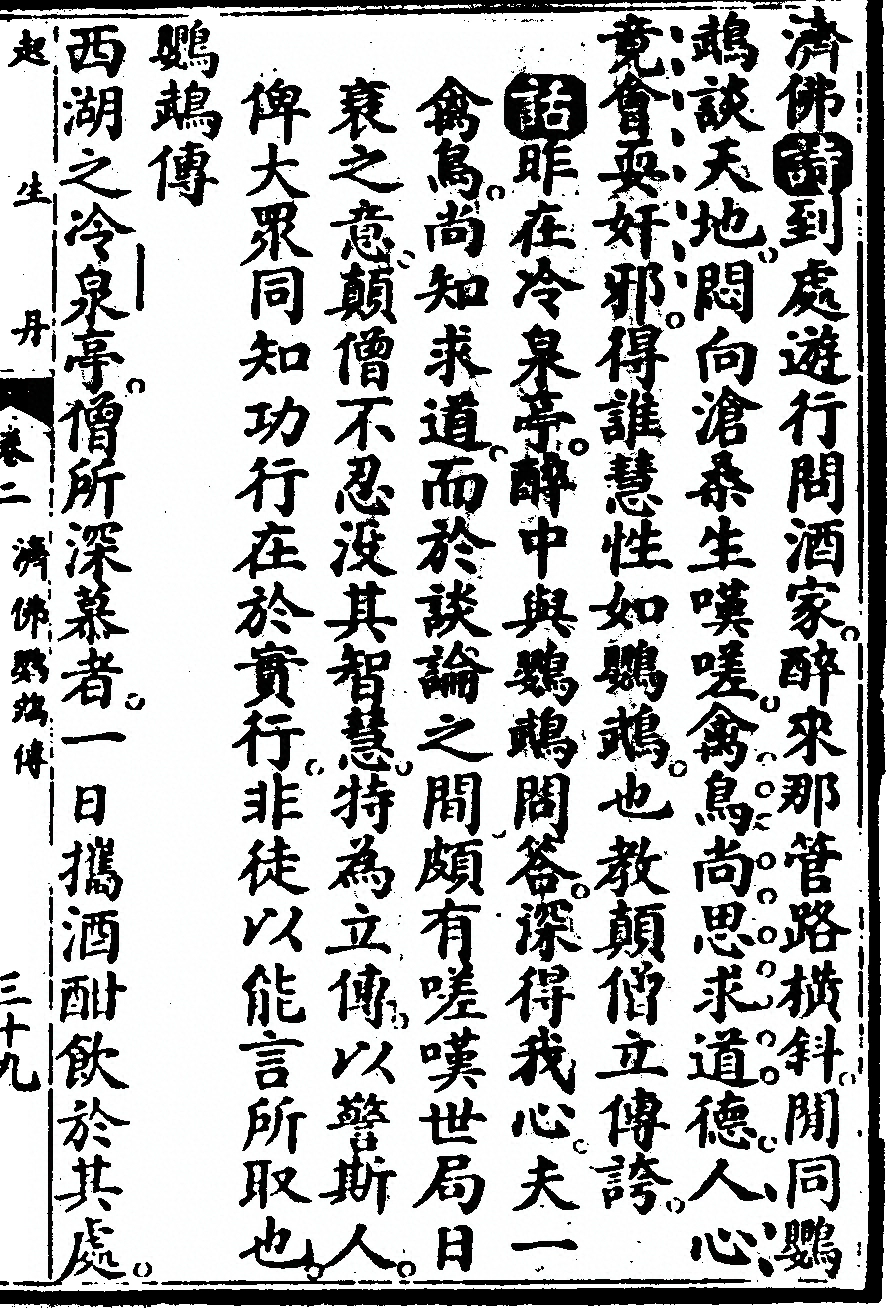 濟佛詩到處遊行問酒家。醉來那管路橫斜。閒同鸚
鵡談天地。悶向滄桑生嘆嗟。禽鳥尚思求道德。人心
竟會耍奸邪。得誰慧性如鸚鵡。也教顛僧立傳誇。
話昨在冷泉亭。醉中與鸚鵡問答。深得我心。夫一
禽鳥。尚知求道。而於談論之間、頗有嗟嘆世局日
衰之意。顛僧不忍沒其智慧。特為立傳。以警斯人。
俾大眾同知功行在於實行。非徒以能言所取也。
鸚鵡傳
西湖之冷泉亭。僧所深慕者。一日攜酒酣飲於其處。
起生丹 卷二 濟佛鸚鵡傳 三十九